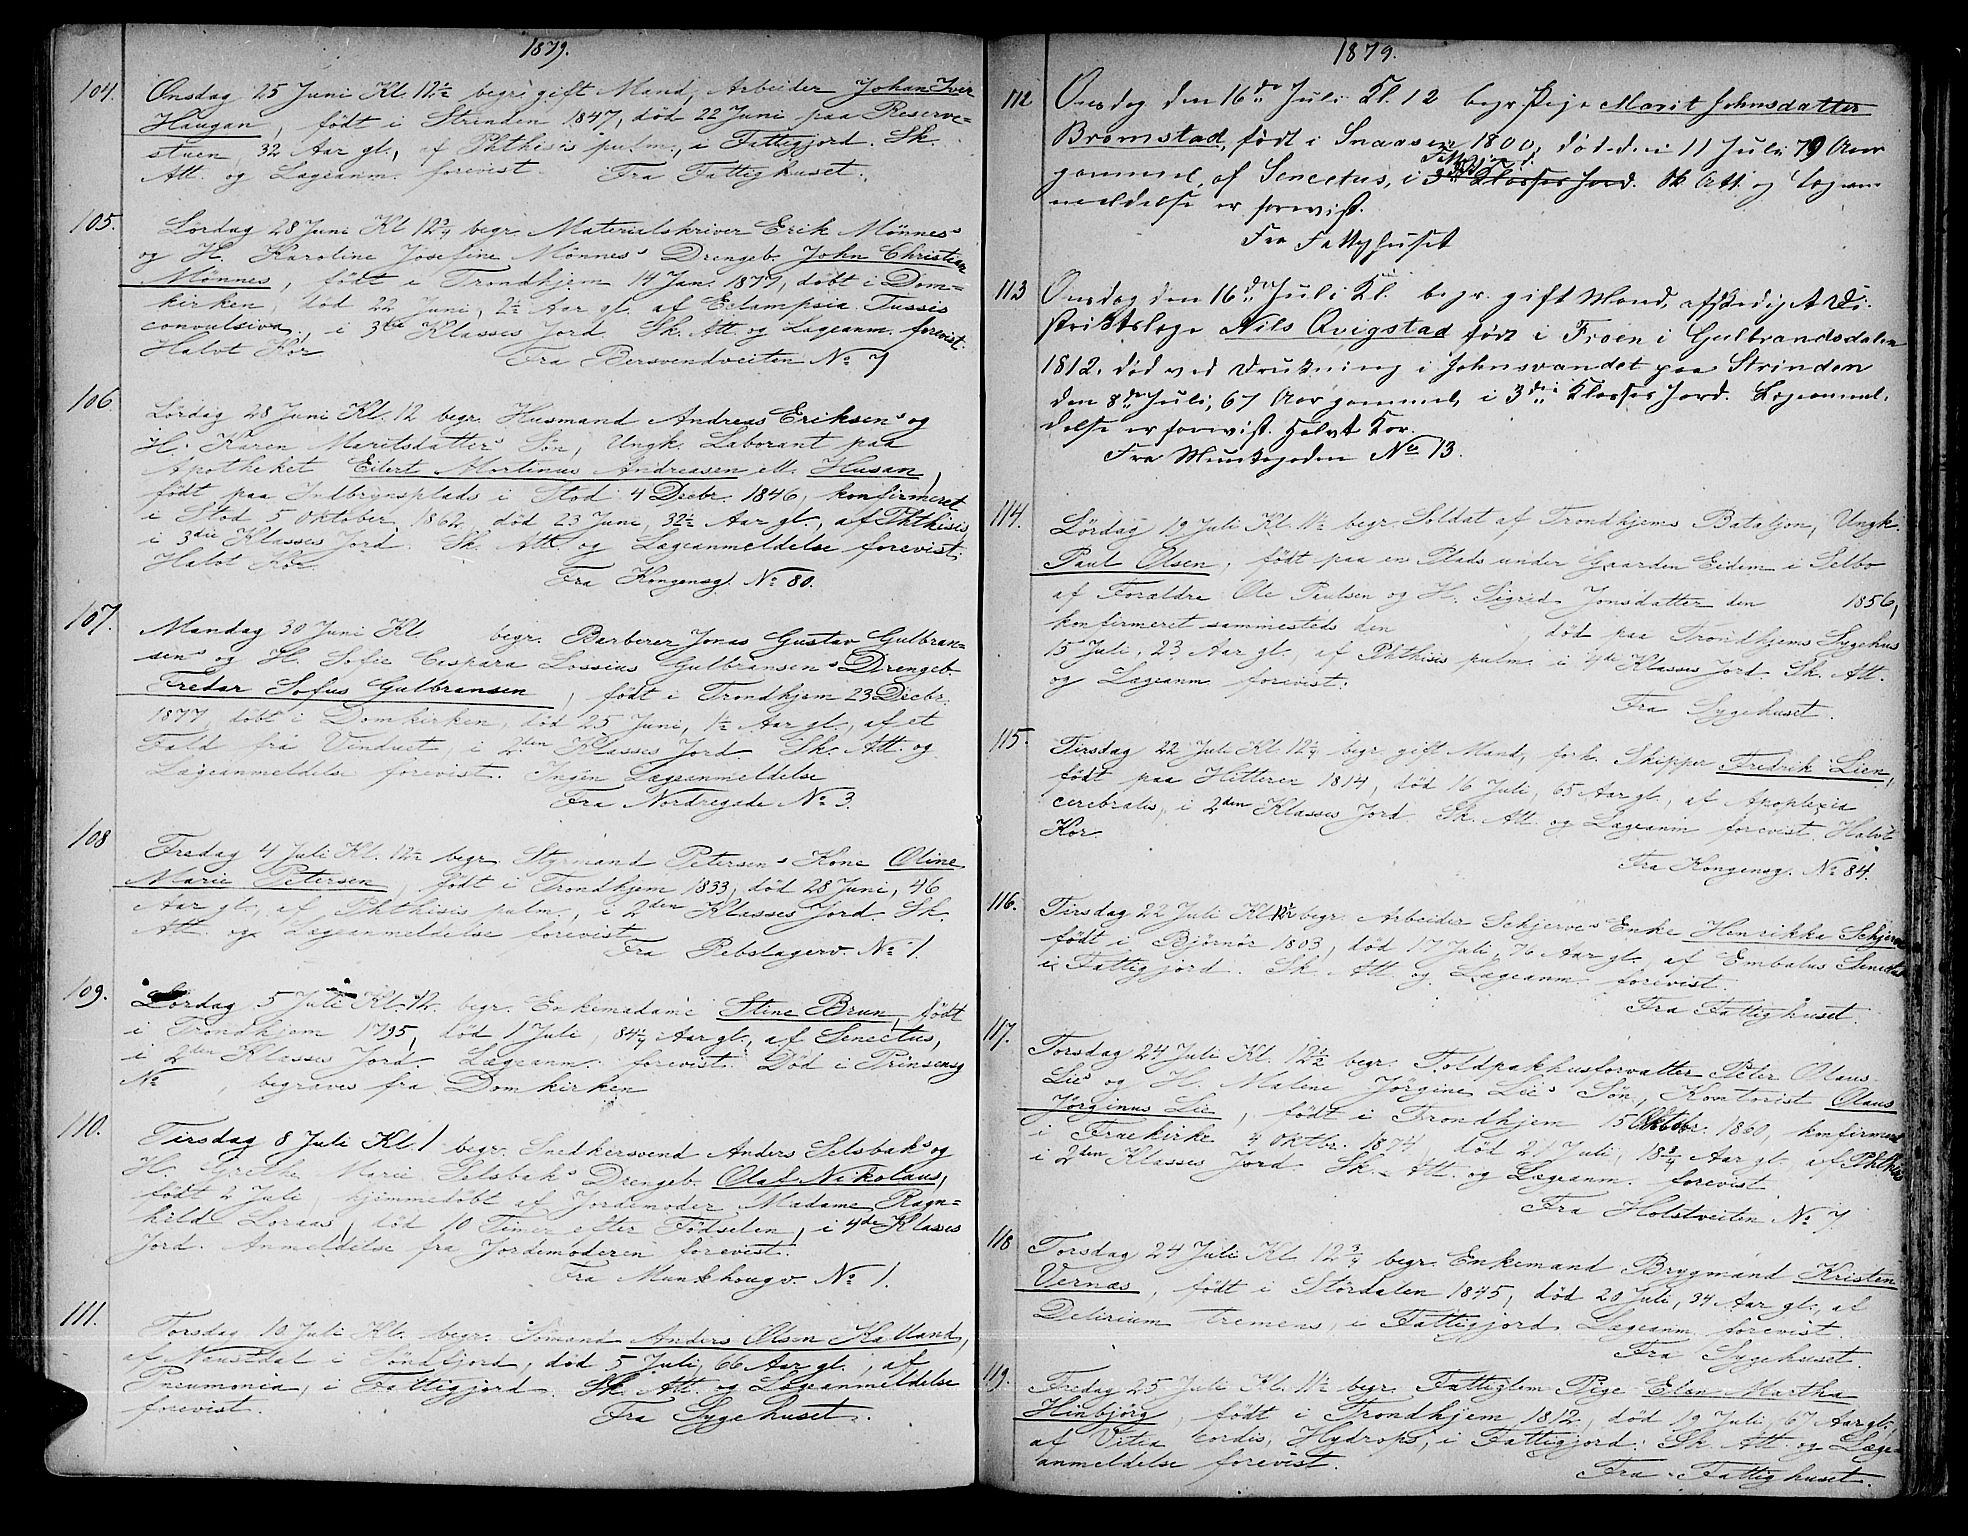 1879.
104. Onsdag 25 Juni Kl. 12½ begr. gift Mand, Arbeider Johan Iver
Haugan, født i Strinden 1847, død 22 Juni paa Reserve=
stuen, 32 Aar gl., af Phthisis pulm., i Fattigjord. Sk.
Att. og Lægeanm. forevist. Fra Fattighuset.
105. Lørdag 28 Juni Kl 12¾ begr. Materialskriver Erik Mønnes's
og H. Karoline Josefine Mønnes's Drengeb. John Christian
Mønnes, født i Trondhjem 14 Jan. 1877, døbt i Dom=
kirken, død 22 Juni, 2½ Aar gl. af Eclampsia. Tussis
convulsiva, i 3die Klasses Jord. Sk. Att og Lægeanm. forevist.
Halvt Kor Fra Bersvendveiten No 7
106. Lørdag 28 Juni Kl. 12 begr. Husmand Andreas Eriksens og
H. Karen Maritsdatters Søn, Ungk. Laborant paa
Apotheket Eilert Mortinus Andreasen ell. Husan,
født paa Indbrynsplads i Stod 4 Decbr. 1846, konfirmeret
i Stod 5 Oktober 1862, død 23 Juni, 32½ Aar gl., af Phthisis
i 3die Klasses Jord. Sk. Att. og Lægeanmeldelse forevist.
Halvt Kor. Fra Kongensg. No 80.
107. Mandag 30 Juni Kl begr. Barberer Jonas Gustav Gulbran-
sens og H. Sofie Cespara Lossius Gulbransens Drengeb.
Fredar Sofus Gulbransen, født i Trondhjem 23 Decbr.
1877, døbt i Domkirken, død 25 Juni, 1½ Aar gl., af et
Fald fra Vinduet, i 2den Klasses Jord. Sk. Att. og
Lægeanmeldelse forevist. Ingen Lægeanmeldelse
Fra Nordregade No 3.
108 Fredag 4 Juli Kl. 12½ begr. Styrmand Petersens Kone Oline
Marie Petersen, født i Trondhjem 1833, død 28 Juni, 46
Aar gl., af Phthisis pulm., i 2den Klasses Jord Sk.
Att. og Lægeanmeldelse forevist.
Fra Rebslagerv. No 1.
109. Lørdag 5 Juli Kl. 12. begr. Enkemadame Stine Brun, født
i Trondhjem 1795, død 1 Juli, 84¼ Aar gl., af Senectus,
i 2den Klasses Jord. Lægeanm. forevist. Død i Prinsensg
No , begraves fra Domkirken
110. Tirsdag 8 Juli Kl. 1 begr. Snedkersvend Anders Selsbaks og
H. Grethe Marie Selsbaks Drengeb. Olaf Nikolaus,
født 2 Juli hjemmedøbt af Jordemoder Madame Ragn=
hild Loraas, død 10 Timer efter Fødselen, i 4de Klasses
Jord. Anmeldelse fra Jordemoderen forevist.
Fra Munkhougv. No 1.
111. Torsdag 10 Juli Kl. begr. Sømand Anders Olsen Kalland,
af Naustdal i Søndfjord, død 5 Juli, 66 Aar gl., af
Pneumonia, i Fattigjord. Sk. Att. og Lægeanmeldelse
forevist. Fra Sygehuset.
1879.
112 Onsdag den 16de Juli Kl. 12 begr. Pige Marit Johnsdatter
Bromstad, født i Snaasen 1800, død den 11 Juli 79 Aar
gammel, af Senectus, i 3die Klasses Jord. Fattigjord. Sk. Att. og Lægean
meldelse er forevist.
Fra Fattighuset
113 Onsdag den 16de Juli Kl. begr. gift Mand, afskediget Di-
striktslæge Nils Qvigstad født i Froen i Gulbrandsdalen
1812, død ved Drukning i Johnsvandet paa Strinden
den 8de Juli, 67 Aar gammel, i 3die Klasses Jord. Lægeanmel-
delse er forevist. Halvt Kor.
Fra Munkegaden No 13.
114. Lørdag 19 Juli Kl. 1½ begr. Soldat af Trondhjems Bataljon, Ungk.
Paul Olsen, født paa en Plads under Gaarden Eidem i Selbo
af Forældre Ole Paulsen og H. Sigrid Jonsdatter den 1856,
konfirmeret sammesteds den død paa Trondhjems Sygehus
15 Juli, 23 Aar gl., af Phthisis pulm. i 4de Klasses Jord Sk. Att.
og Lægeanm forevist.
Fra Sygehuset.
115. Tirsdag 22 Juli Kl. 12¼ begr. gift Mand, forh. Skipper Fredrik Lien,
født paa Hitteren 1814, død 16 Juli, 65 Aar gl., af Apoplexia
cerebralis, i 2den Klasses Jord. Sk. Att. og Lægeanm forevist. Halvt
Kor
Fra Kongensg. No 84.
116. Tirsdag 22 Juli Kl 12½ begr. Arbeider Schjerves Enke Henrikka Schjerve
født i Bjørnør 1803, død 17 Juli, 76 Aar gl. af Embolus Senectus
i Fattigjord. Sk. Att og Lægeanm. forevist.
Fra Fattighuset.
117. Torsdag 24 Juli Kl. 12½ begr. Toldpakhusforvalter Peter Olaus
Lies og H. Malene Jørgine Lies Søn, Kontorist Olaus
Jørginus Lie, født i Trondhjem 15 Oktobr. 1860, konfirmeret
i Fruekirke 4 Oktbr. 1874, død 21 Juli, 18¾ Aar gl. af Phthisis
i 2den Klasses Jord Sk. Att. og Lægeanm. forevist.
Fra Holstveiten No 7
118 Torsdag 24 Juli Kl. 12¾ begr. Enkemand Brygmand Kristen
Vernæs, født i Størdalen 1845, død 20 Juli, 34 Aar gl., af
Delirium tremens, i Fattigjord Lægeanm. forevist.
Fra Sygehuset.
119. Fredag 25 Juli Kl. 1½ begr. Fattiglem Pige Elen Martha
Hinbjørg, født i Trondhjem 1812, død 19 Juli, 67 Aar gl.,
af Vitia cordis, Hydrops, i Fattigjord. Sk. Att. og Læge-
anmeldelse forevist.
Fra Fattighuset.